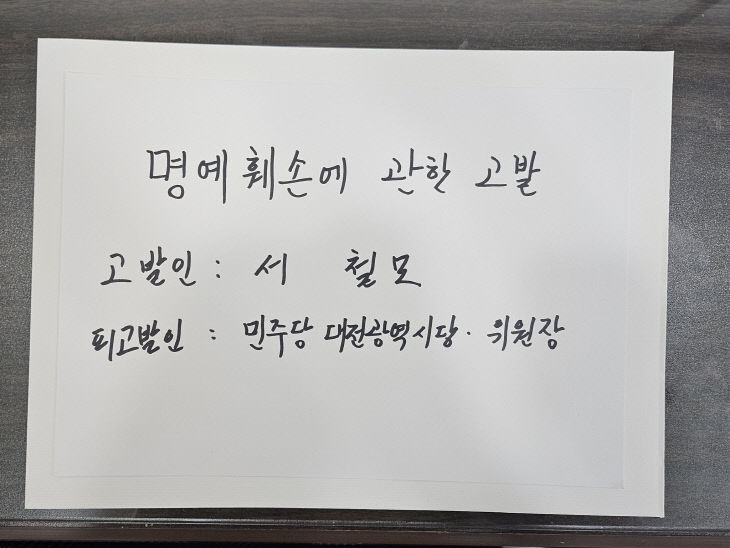 명예훼손에 관한 고발
고발인 : 서 철모
피고발인 : 민주당 대전광역시당· 위원장